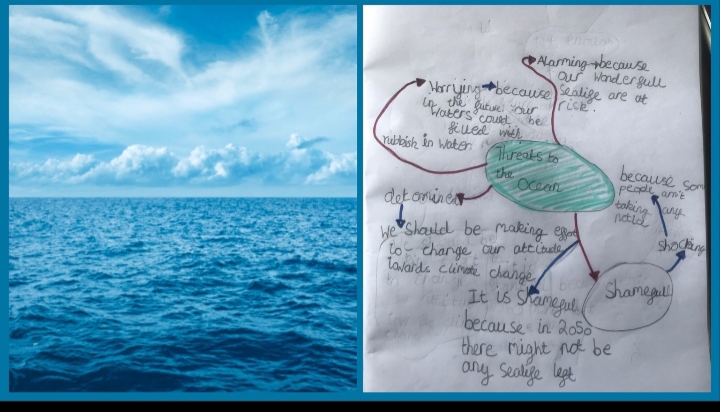 Alarming because
our wonderfull
Sealife are at
risk.
Worrying because
in the future our
waters could be
filled with
rubbish in water
Threats to
the Ocean
determined
We should be making effort
to change our attitude
towards climate change
because som
people arn't
taking any
notice
Shocking
Shamefull
It is Shamefull
because in 2050
there might not be
any Sealife left